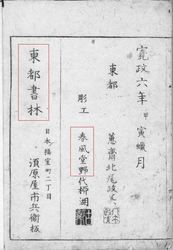 寛政六年甲寅蠟月
東都
蕙齋北尾政美
彫工
春風堂野代柳湖
東都書林
日本橋室町二丁目
須原屋市兵衛板